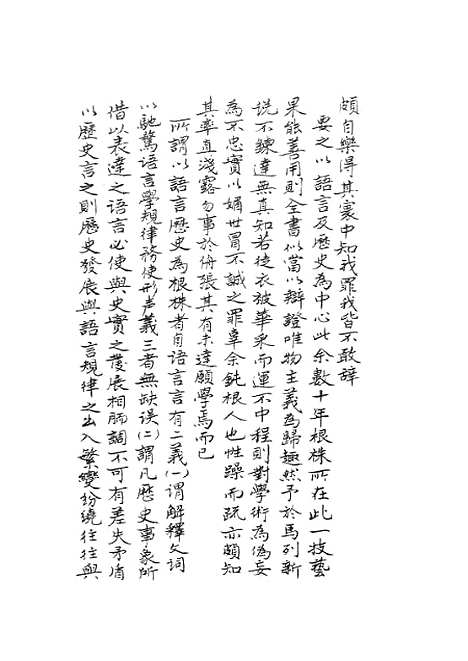 頗自樂得其寰中知我罪我皆不敢辞
要之以語言及歷史為中心此余數十年根株所在此一技藝
果能善用則全書似當以辯證唯物主義為歸趣然予於馬列新
説不鍊達無真知若徒衣被華采而運不中程則對學術為偽妄
為不忠實以媚世冒不誠之罪辜余鈍根人也性躁而疏亦頗知
其率直淺露勿事於侜張其有未達願學焉而已
所謂以語言歷史為根株者自語言言有二義(一)謂解釋文詞
以馳騖语言學規律務使形声義三者無缺误(二)謂凡歷史事象所
借以表達之语言必使與史實之發展相脗調不可有差失矛盾
以歷史言之則歷史發展與語言規律之出入繁變紛繞往往與